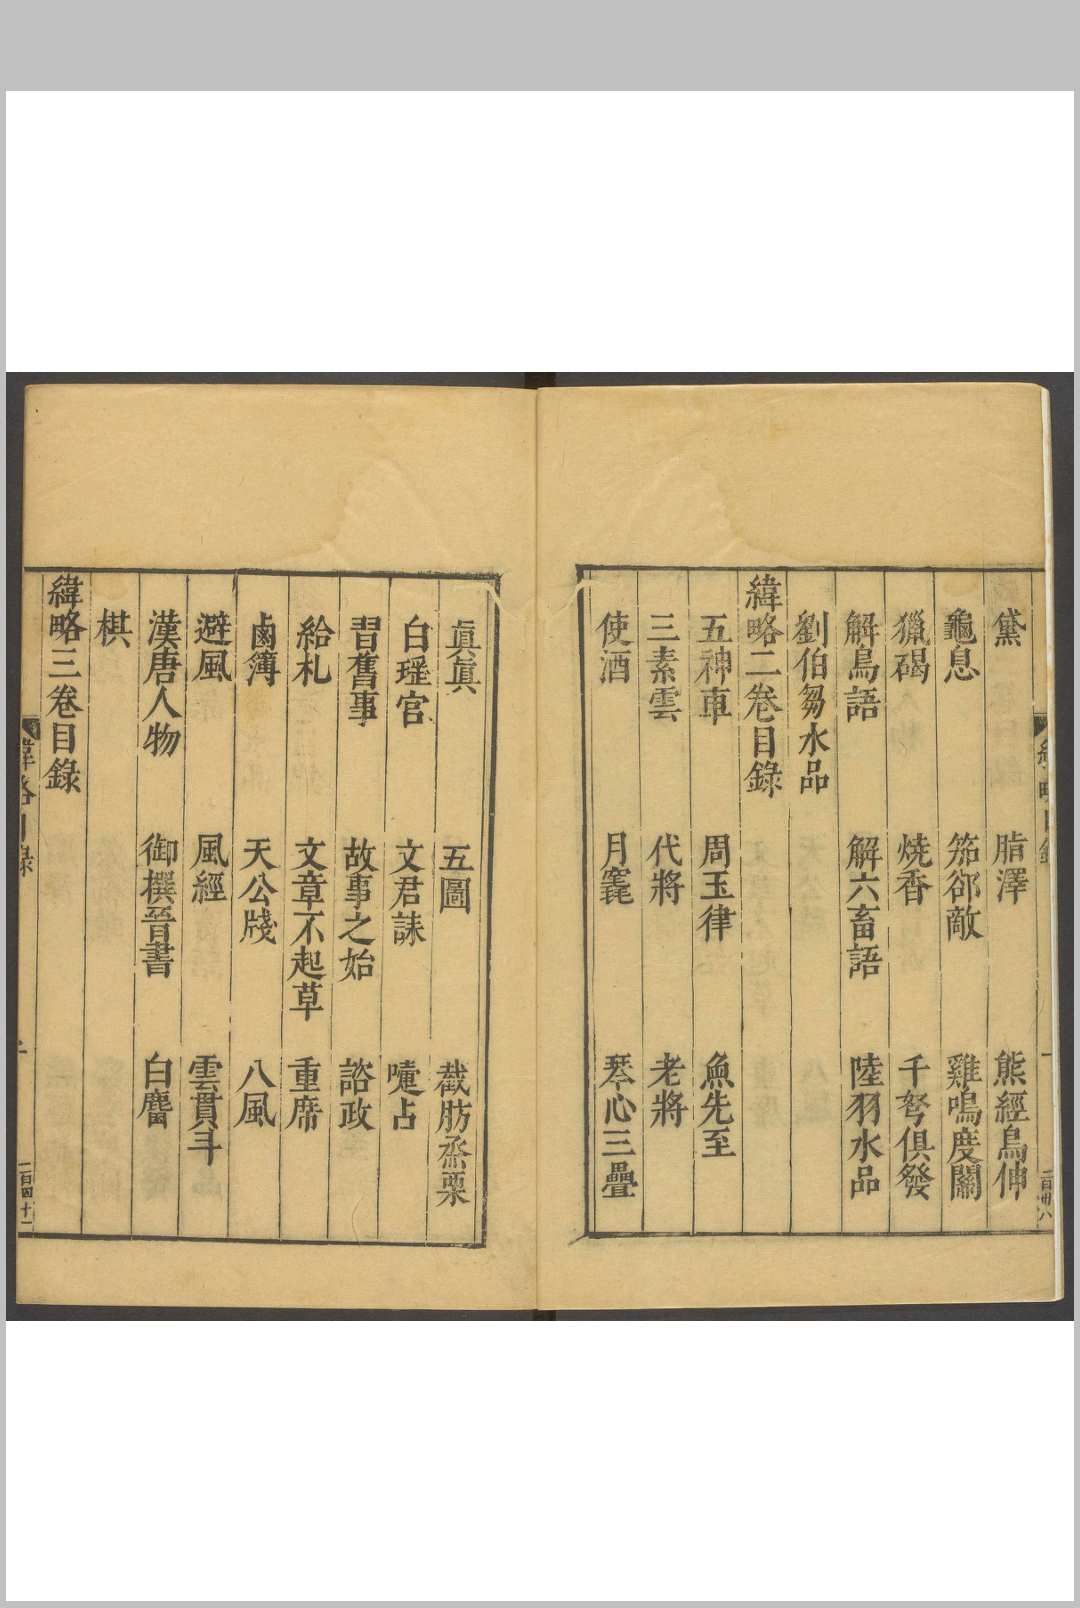 黛 脂澤 熊經鳥伸
龜息 笳郤敵 雞鳴度關
獵碣 燒香 千弩俱發
解鳥語 解六畜語 陸羽水品
劉伯芻水品
緯略二卷目錄
五神車 周玉律 魚先至
三素雲 代將 老將
使酒 月毳 琴心三疊
眞眞 五圖 截肪烝栗
白瑤宮 文君誄 嚏占
習舊事 故事之始 諮政
給札 文章不起草 重席
鹵簿 天公牋 八風
避風 風經 雲貫斗
漢唐人物 御撰晉書 白麕
棋
緯略三卷目錄